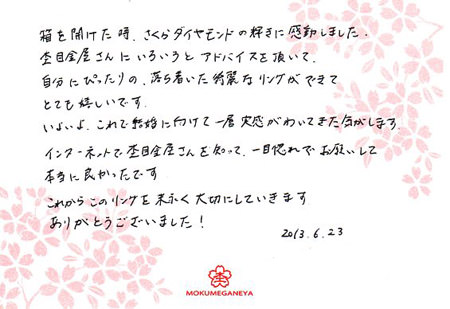 箱を開けた時、さくらダイヤモンドの輝きに感動しました。
杢目金屋さんにいろいろとアドバイスを頂いて、
自分にぴったりの、落ち着いた綺麗なリングができて
とても嬉しいです。
いよいよ、これで結婚に向けて一層実感がわいてきた気がします。
インターネットで杢目金屋さんを知って、一目惚れでお願いして
本当に良かったです
これからこのリングを末永く大切にしていきます
ありがとうございました！
2013.6.23
MOKUMEGANEYA